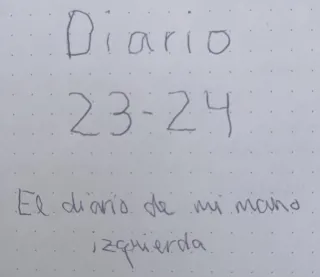 Diario
23-24
El diario de mi mano
izquierda